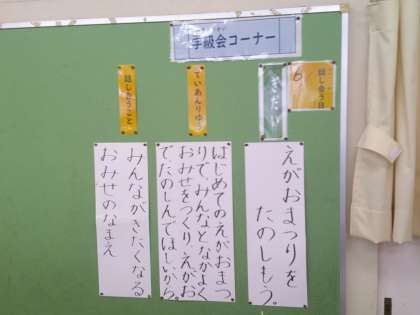 学級会コーナー
話し合う日
6
ぎだい
えがおまつりを
たのしもう。
ていあんりゆう
はじめてのえがおまつ
りで、みんなとなかよく
おみせをつくり、えがお
でたのしんでほしいから。
話し合うこと
みんながきたくなる
おみせのなまえ